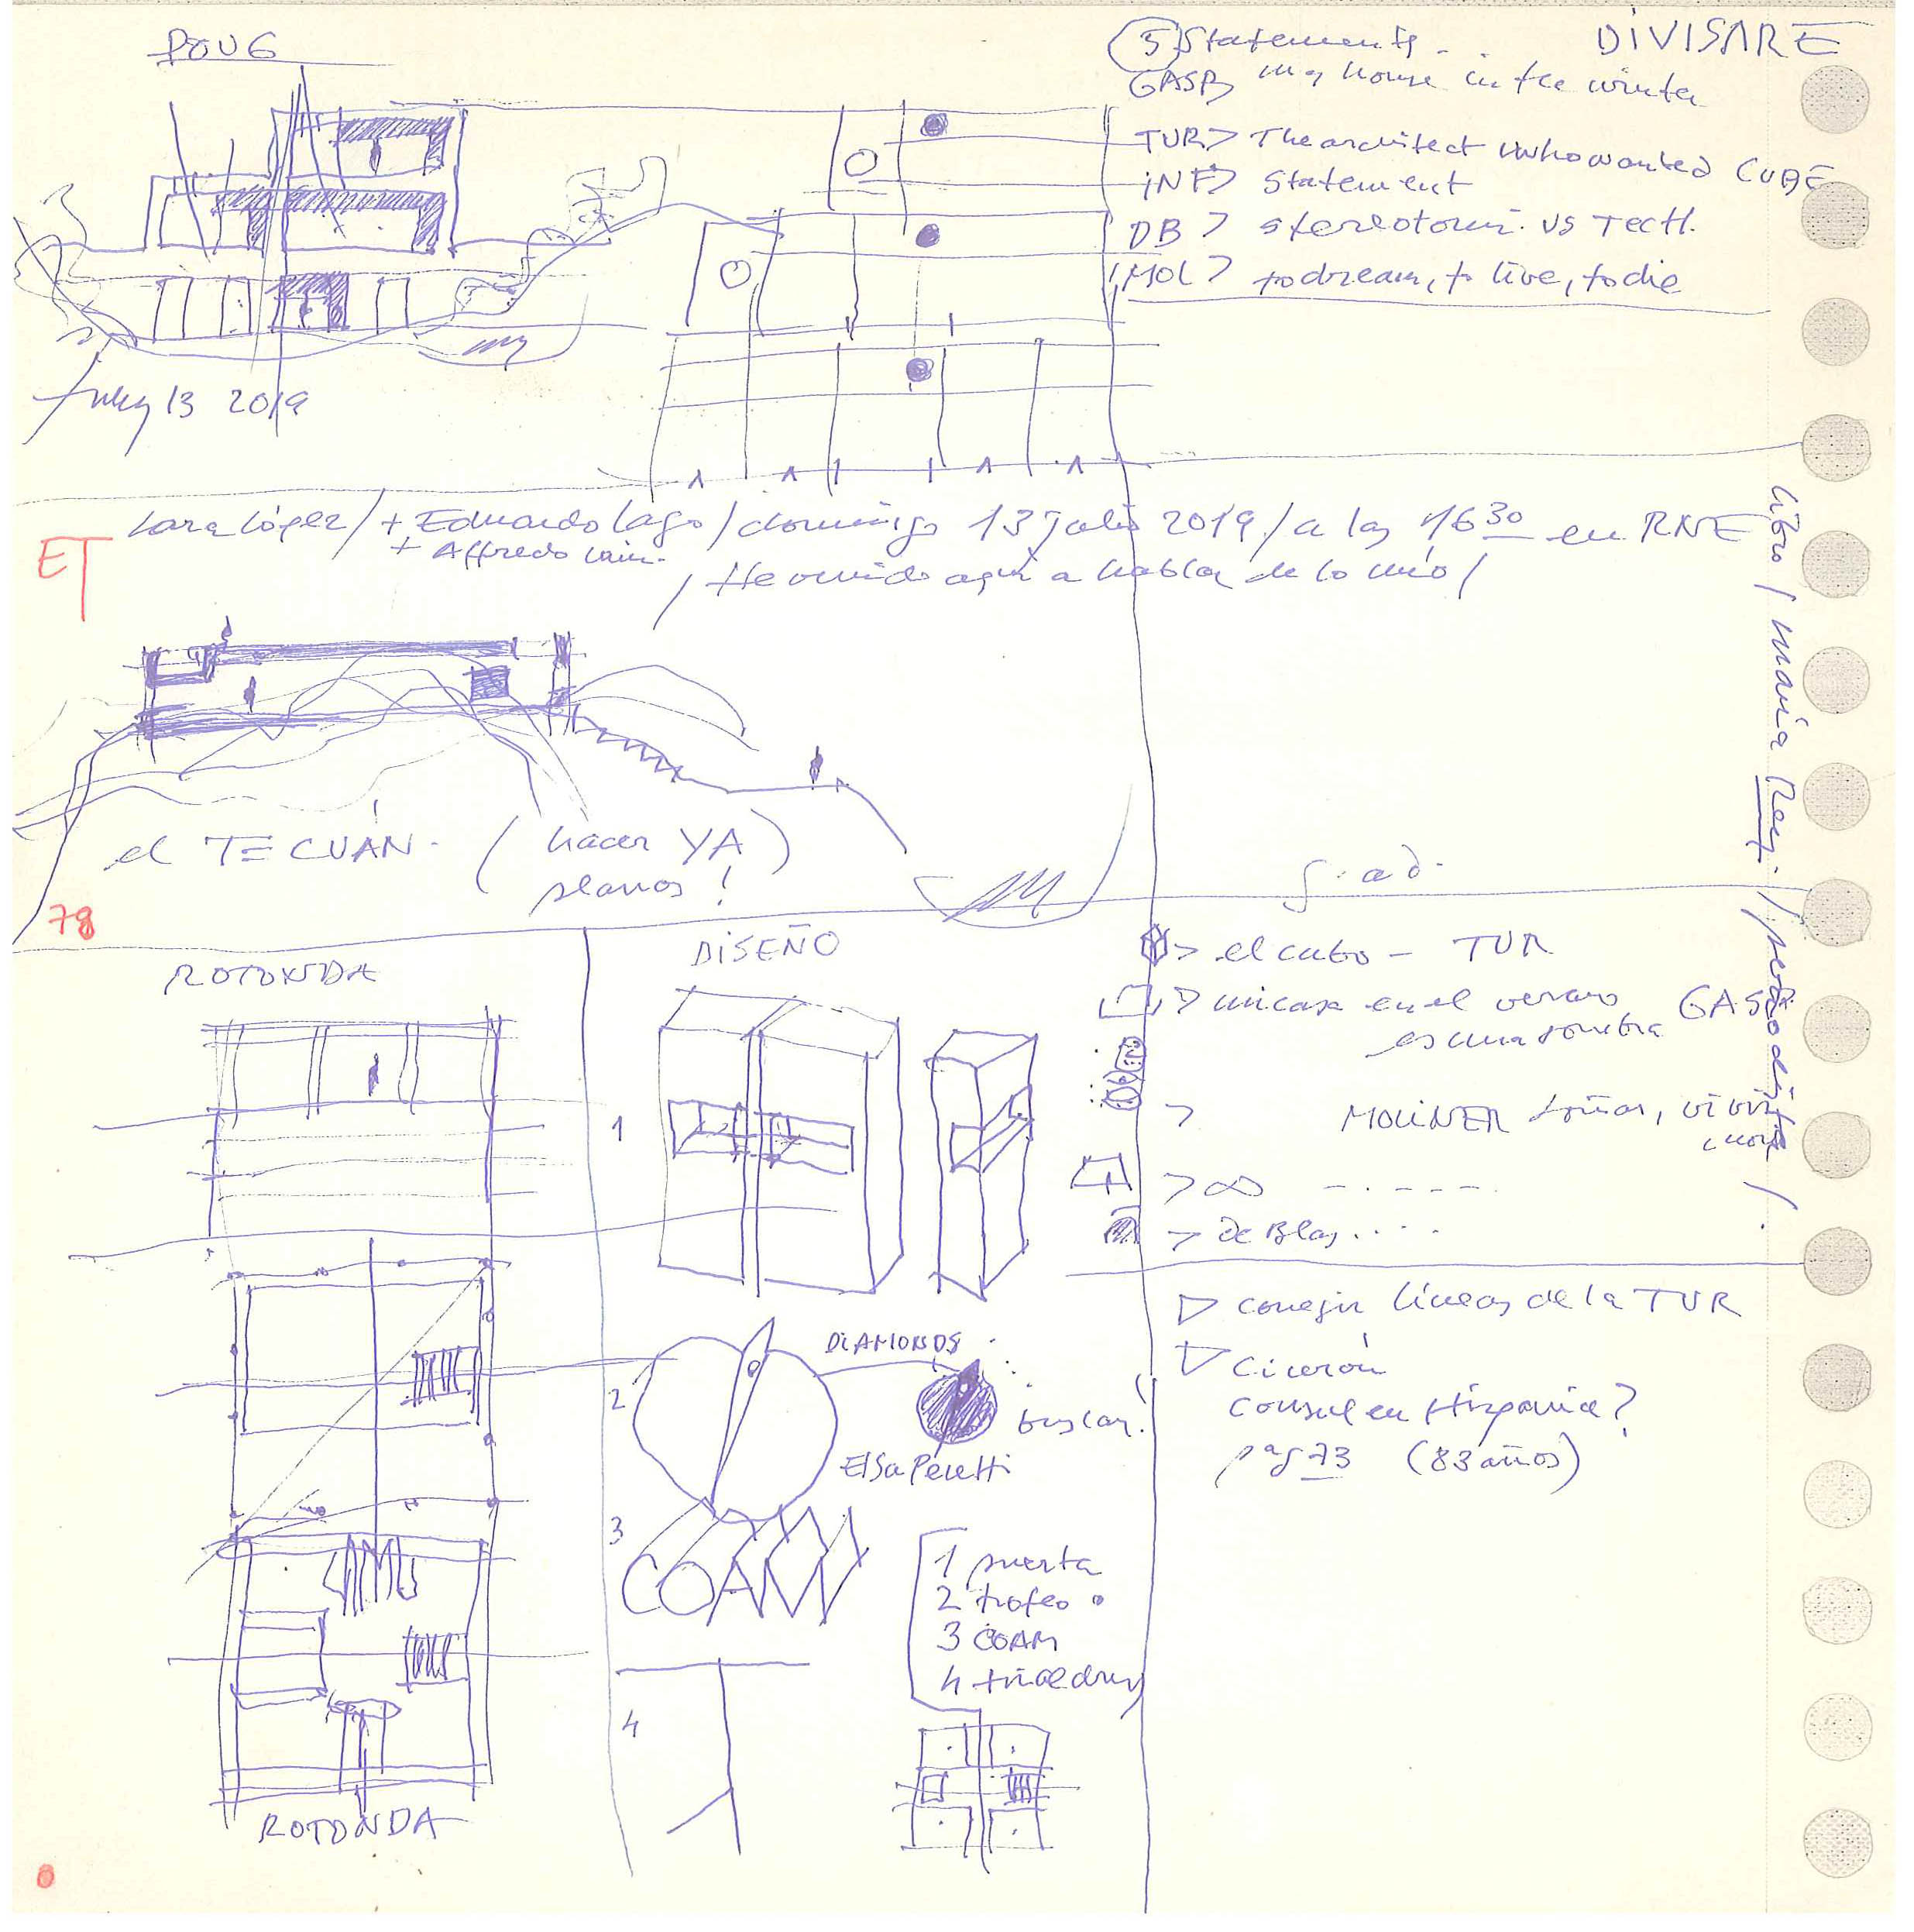 DOUG
July 13 2019
5 Statements.. DIVISARE
GASP my house in the winter
TUR> The architect who wanted CUBE
INF> Statement
DB > stereotom. vs Tect.
MOL > to dream, to live, to die
ET
Lara López / + Eduardo Lago / domingo 13 julio 2019 / a las 16 30 en RNE
+ Alfredo
/ He venido aquí a hablar de lo mío /
el TECUÁN. (hacer YA
planos!)
78
libro / María Rey. / periodista /
ROTONDA
DISEÑO
> el cubo - TUR
> mi casa en el verano GASP.
es una sombra
> MOLINER soñar, vivir
morir
> ∞ - . - - - -
> De Blas....
1
2
DIAMONDS
buscar!
Elsa Peretti
3
COAM
4
1 puerta
2 trofeo
3 COAM
4
▷ corregir líneas de la TUR
▷ Cicerón
Consul en Hispania?
pag 73 (83 años)
ROTONDA